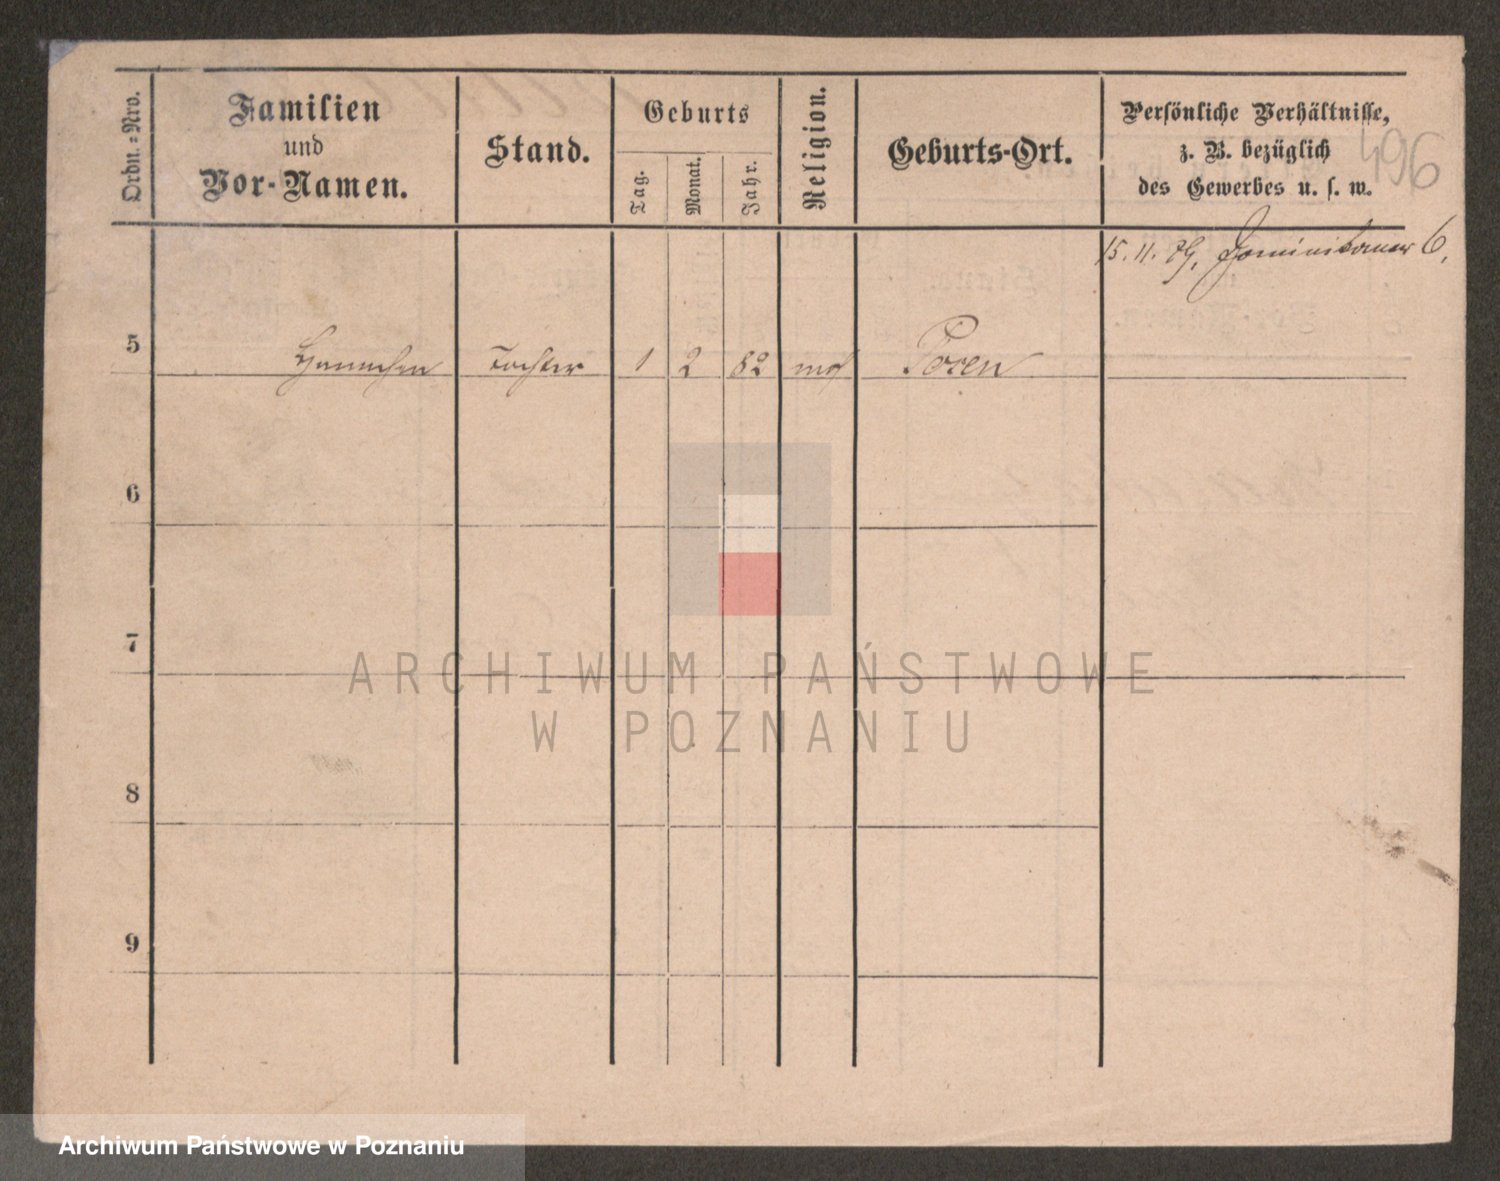 Ordn.=Nro.
Familien
und
Vor-Namen.
Stand.
Geburts
Tag.
Monat.
Jahr.
Religion.
Geburts-Ort.
Persönliche Verhältnisse,
z. B. bezüglich
des Gewerbes u. s. w.
496
15. 11. 79, Dominikaner 6,
5 Hannchen Tochter 1 2 82 mos Posen
6
7
8
9
ARCHIWUM PAŃSTWOWE
W POZNANIU
Archiwum Państwowe w Poznaniu